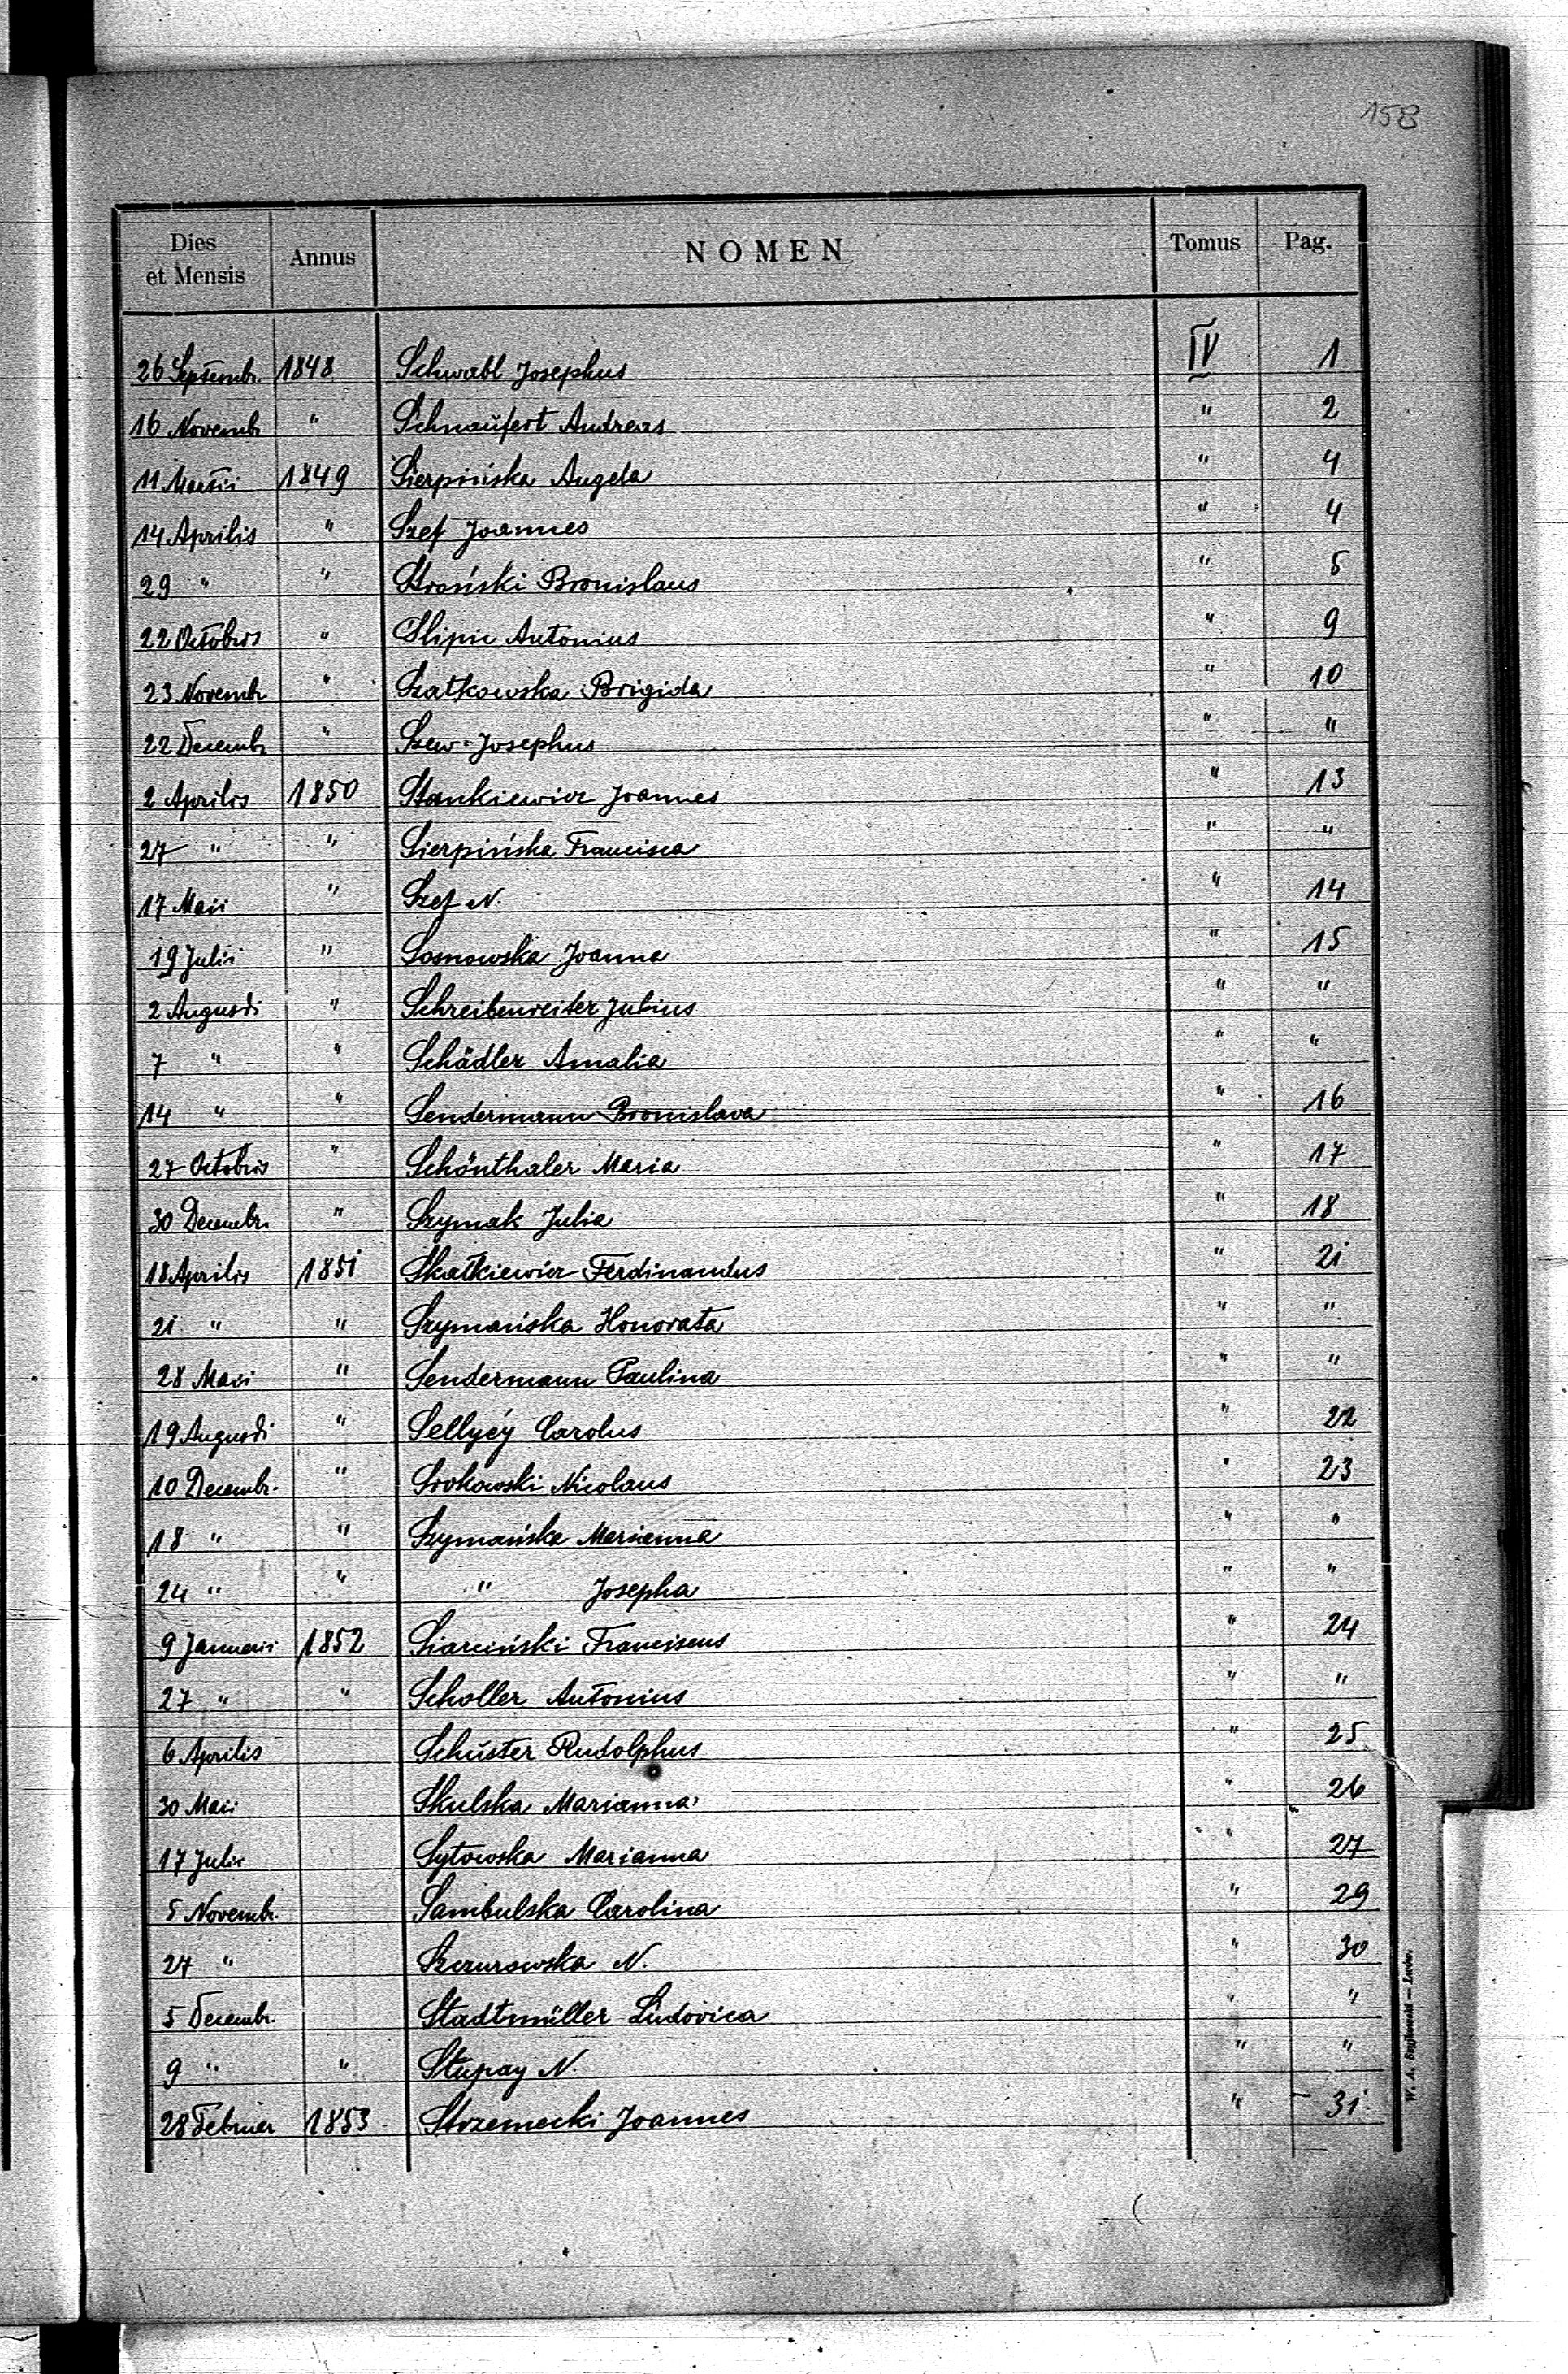 158
Dies et Mensis Annus NOMEN Tomus Pag.
26 Septembr. 1848 Schwabl Josephus IV 1
16 Novembr " Schnaufert Andreas " 2
11 Martii 1849 Sierpińska Angela " 4
14 Aprilis " Szef Joannes " 4
29 " " Stroński Bronislaus " 5
22 Octobris " Slipic Antonius " 9
23 Novembr " Szatkowska Brigida " 10
22 Decembr " Szew Josephus " "
2 Aprilis 1850 Stankiewicz Joannes " 13
27 " " Sierpińska Francisca " "
17 Maii " Szef N. " 14
19 Julii " Sosnowska Joanna " 15
2 Augusti " Schreibenreiter Julius " "
7 " " Schädler Amalia " "
14 " " Sendermann Bronislava " 16
27 Octobris " Schönthaler Maria " 17
30 Decembr. " Szymak Julia " 18
18 Aprilis 1851 Skatkiewicz Ferdinandus " 21
21 " " Szymańska Honorata " "
28 Maii " Sendermann Paulina " "
19 Augusti " Sellyéy Carolus " 22
10 Decembr. " Srokowski Nicolaus " 23
18 " " Szymańska Marianna " "
24 " " " Josepha " "
9 Januarii 1852 Siarciński Franciscus " 24
27 " " Scholler Antonius " "
6 Aprilis Schuster Rudolphus " 25
30 Maii Skulska Marianna " 26
17 Julii Sytowska Marianna " 27
5 Novembr. Sambulska Carolina " 29
27 " Szczurowska N. " 30
5 Decembr. Stadtmüller Ludovica " "
9 " " Stupay N. " "
28 Februar 1853 Strzemecki Joannes " 31